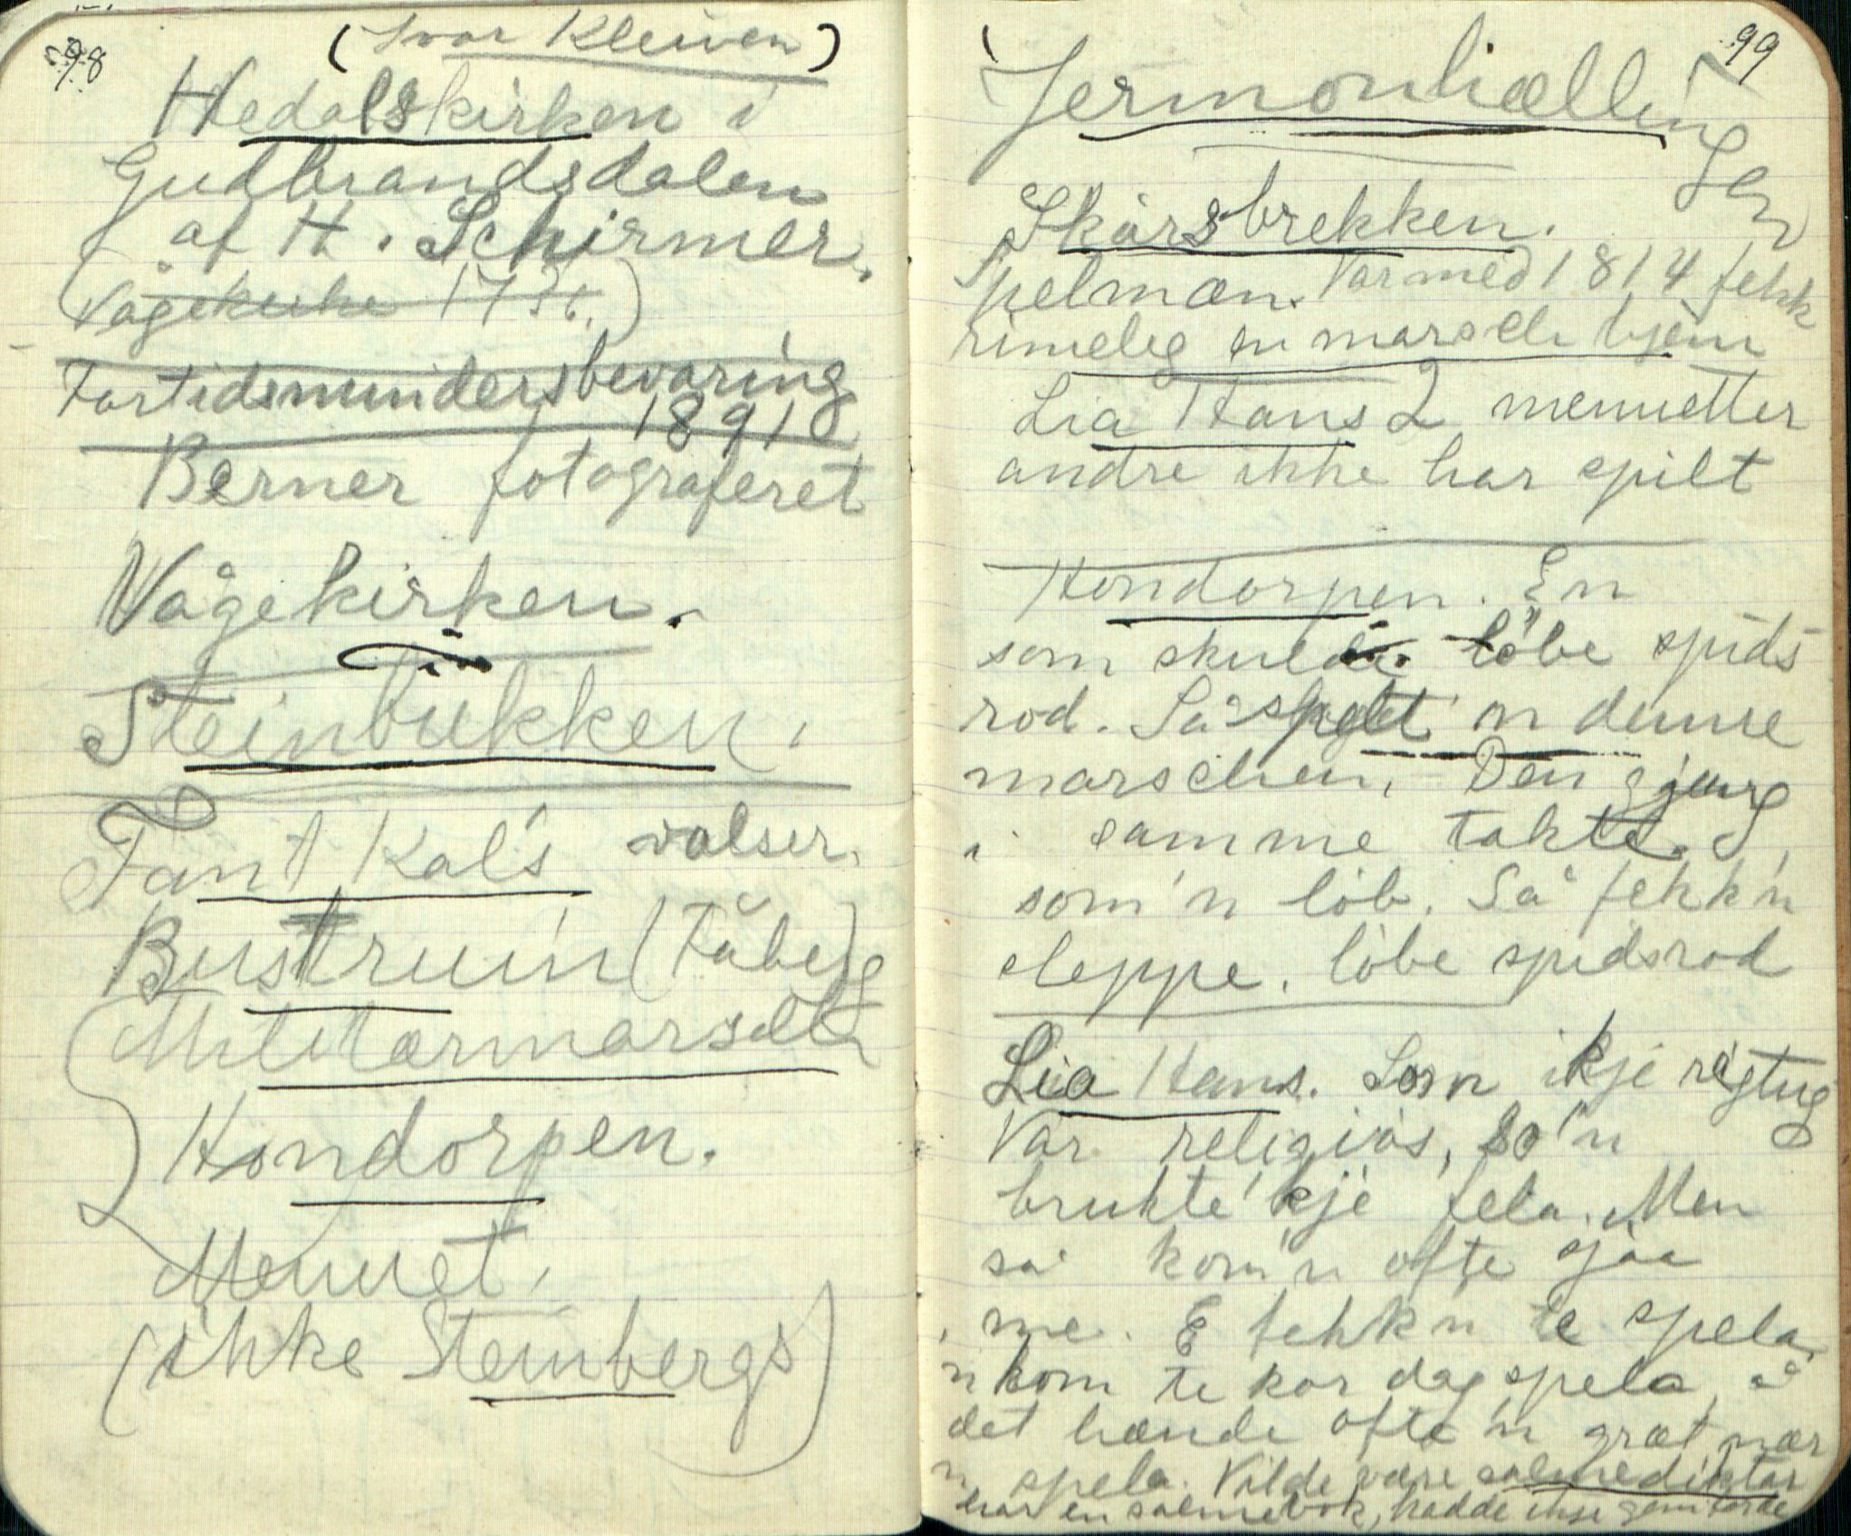 98
(Ivar Kleiven)
Hedalskirken i
Gudbrandsdalen
af H. Schirmer.
(Vågekirke 1736.)
Fortidsmindersbevaring
1891
Berner fotograferet
Vågekirken.
Steinbukken.
Fant Kal's valser.
Bustruin (Fåberg)
Militærmarsch
Hondorpen.
Menuet.
(ikke Steinbergs)
99
Jermonhælling
Skårsbrekken.
Spelman. Var med 1814 fekk
rimelig en marsch hjem
Lia Hans 2 menuetter
andre ikke har spilt
Hondorpen. En
som skulde löbe spids
rod. Så spelet on denne
marschen. Den gjeng
i samme takte
som'n löb. Så fekk'n
sleppe. löbe spidsrod
Lia Hans. Som ikje rigtug
Var religiös, so'n
brukte'kje fela. Men
så kom'n ofte sjaa
me. E fekk'n te spela
n kom te kor dag spela, å
det hænde ofte'n græt nær
n spela. Vilde være salmediktar
har en salmebok, hadde ikje